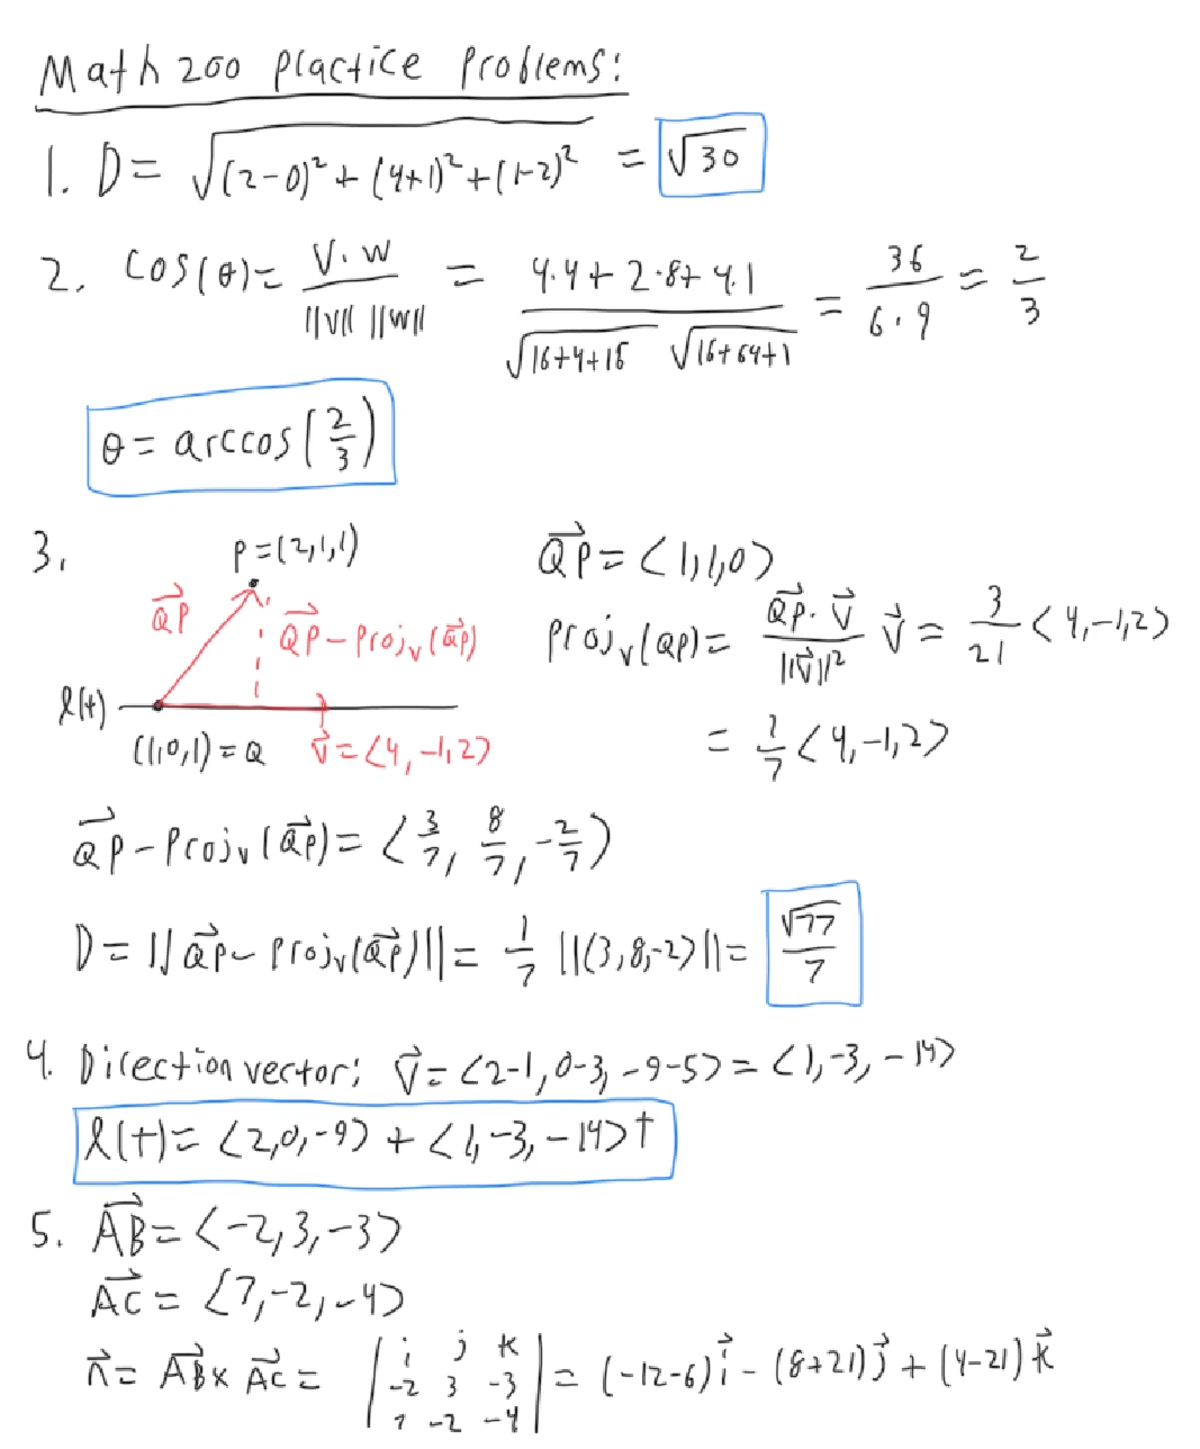 Math 200 practice problems:
1. D = √((2-0)² + (4+1)² + (1-2)²) = √30
2. cos(θ) = V·W / ||V|| ||W|| = 4·4 + 2·8 + 4·1 / √16+4+16 √16+64+1 = 36 / 6·9 = 2/3
θ = arccos(2/3)
3. P = (2,1,1)
QP⃗
QP⃗ - Projᵥ(QP⃗)
l(t)
(1,0,1) = Q
v⃗ = <4, -1, 2>
QP⃗ = <1,1,0>
Projᵥ(QP) = QP⃗·V⃗ / ||V⃗||² V⃗ = 3/21 <4,-1,2>
= 1/7 <4,-1,2>
QP⃗ - Projᵥ(QP⃗) = <3/7, 8/7, -2/7>
D = ||QP⃗ - Projᵥ(QP⃗)|| = 1/7 ||<3,8,-2>|| = √77/7
4. Direction vector: V⃗ = <2-1, 0-3, -9-5> = <1,-3,-14>
l(t) = <2,0,-9> + <1,-3,-14>t
5. AB⃗ = <-2,3,-3>
AC⃗ = <7,-2,-4>
n⃗ = AB⃗ x AC⃗ = | i j k | = (-12-6)i⃗ - (8+21)j⃗ + (4-21)k⃗
-2 3 -3
7 -2 -4